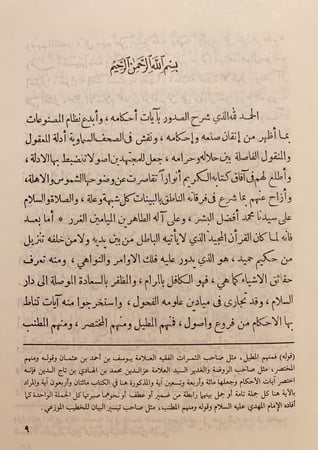 بسم الله الرحمن الرحيم
الحمد لله الذي شرح الصدور بآيات أحكامه ، وأبدع نظام المصنوعات
بما أظهر من إتقان صنعه وإحكامه ، ونقش في الصحف السماوية أدلة المعقول
والمنقول الفاصلة بين حلاله وحرامه ، جعل للمجتهدين اصولا تنضبط بها الادلة ،
وأطلع لهم في آفاق كتابه الكريم أنواراً تقاصرت عن وضوحها الشموس والاهلة ،
وأزاح عنهم بما شرع في فرقانه الناطق بالبينات كل شبهة وعلة ، والصلاة والسلام
على سيدنا محمد أفضل البشر ، وعلى آله الطاهرين الميامين الغرر * أما بعد
فانه لما كان القرآن المجيد الذي لا يأتيه الباطل من بين يديه ولا من خلفه تنزيل
من حكيم حميد ، هو الذي يدور عليه فلك الاوامر والنواهي ، ومنه تعرف
حقائق الاشياء كما هي ، فهو الكافل بالمرام ، والمظفر بالسعادة الموصلة الى دار
السلام ، وقد تجارى في ميادين علومه الفحول ، واستخرجوا منه آيات تناط
بها الاحكام من فروع واصول ، فمنهم المطيل ومنهم المختصر ، ومنهم المطنب
(قوله) فمنهم المطيل، مثل صاحب الثمرات الفقيه العلامة يوسف بن أحمد بن عثمان وقوله ومنهم
المختصر، مثل صاحب الروضة والغدير السيد العلامة عز الدين محمد بن الهادي بن تاج الدين فإنه
اختصر آيات الأحكام وجعلها مائة وأربعة وتسعين آية والمذكورة هنا في الكتاب مائتان وأربعون آية والمراد
بالآية هنا كل جملة تامة أو جمل بينها رابطة من ضمير أو عطف أو نحوهما صيرتها كل الجملة الواحدة كما
أفاده الإمام المهدي عليه السلام وقوله ومنهم المطنب، مثل صاحب تيسير البيان للخطيب الموزعي .
٩